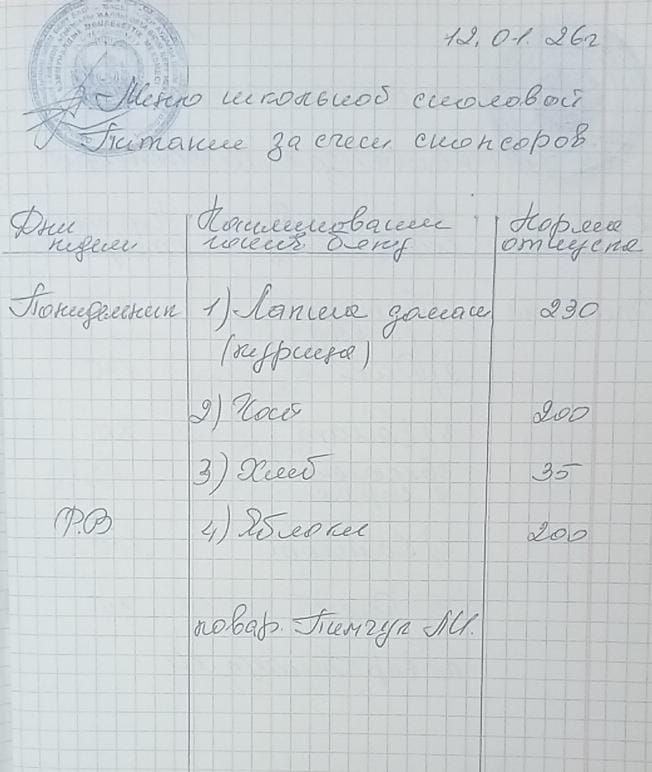 12.01.26г
Меню школьной столовой
Питание за счет спонсоров
Дни
недели
Наименование
блюд
Норма
отпуска
Понидельник
1) Лапша домаш
230
(курица)
2) Чай
200
3) Хлеб
35
Р.В
4) Яблоки
200
повар.